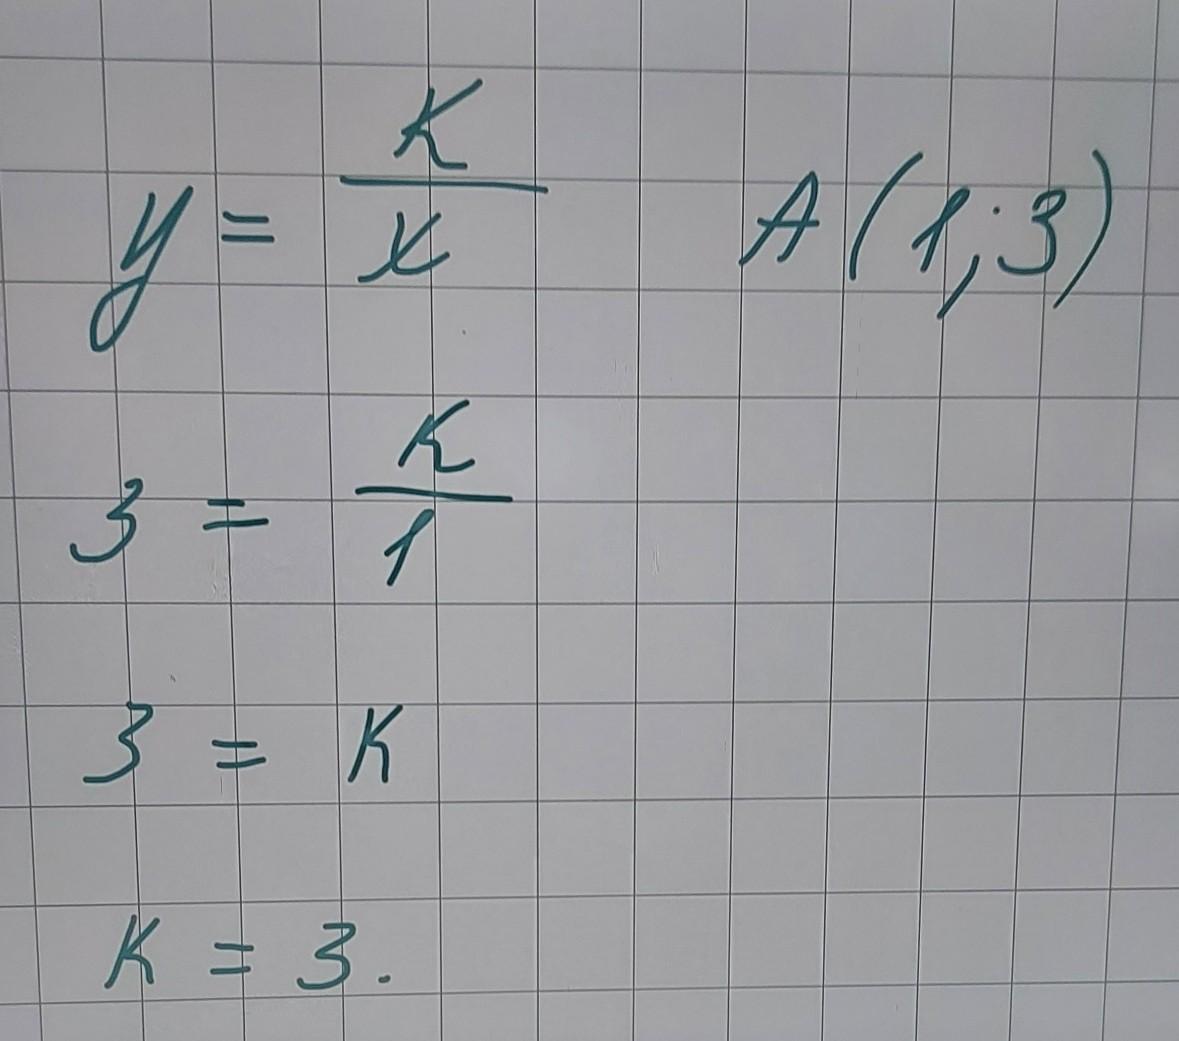 y = K/x A(1;3)
3 = K/1
3 = K
K = 3.